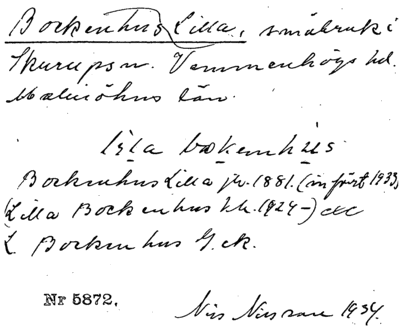 Bockenhus, Lilla, småbruk i
Skurups sn. Vemmenhögs hd.
Malmöhus län.
lɩla bokenhüs
Bockenhus Lilla jb. 1881. (infört 1933)
(Lilla Bockenhus kb. (1824-)
L. Bockenhus G.ek.
Nr 5872.
Nils Nilsson 1934.